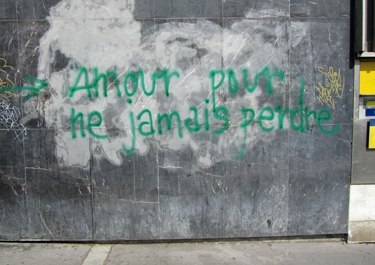 Amour pour
ne jamais perdre